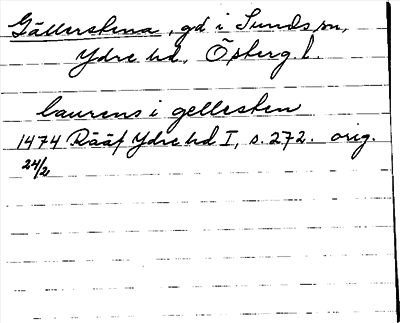 Gällerstena, gd i Sunds sn,
Ydre hd, Östergl.
laurens i gellesten
1474 Rääf Ydre hd I, s. 272. orig.
24/2